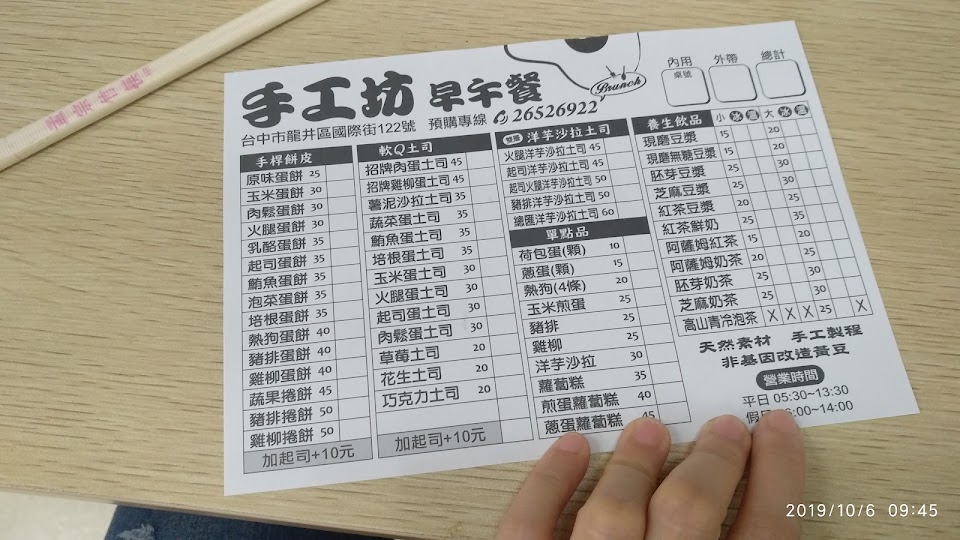 手工坊 早午餐
Brunch
台中市龍井區國際街122號 預購專線 26526922
內用 外帶 總計
桌號
手桿餅皮
原味蛋餅 25
玉米蛋餅 30
肉鬆蛋餅 30
火腿蛋餅 30
乳酪蛋餅 35
起司蛋餅 35
鮪魚蛋餅 35
泡菜蛋餅 35
培根蛋餅 35
熱狗蛋餅 40
豬排蛋餅 40
雞柳蛋餅 40
蔬果捲餅 45
豬排捲餅 50
雞柳捲餅 50
加起司+10元
軟Q土司
招牌肉蛋土司 45
招牌雞柳蛋土司 45
薯泥沙拉土司 35
蔬菜蛋土司 35
鮪魚蛋土司 35
培根蛋土司 35
玉米蛋土司 30
火腿蛋土司 30
起司蛋土司 30
肉鬆蛋土司 30
草莓土司 20
花生土司 20
巧克力土司 20
加起司+10元
洋芋沙拉土司
火腿洋芋沙拉土司 45
起司洋芋沙拉土司 45
起司火腿洋芋沙拉土司 50
豬排洋芋沙拉土司 50
總匯洋芋沙拉土司 60
單點品
荷包蛋(顆) 10
蔥蛋(顆) 15
熱狗(4條) 20
玉米煎蛋 25
豬排 25
雞柳 25
洋芋沙拉 30
蘿蔔糕 35
煎蛋蘿蔔糕 40
蔥蛋蘿蔔糕 45
養生飲品 小 冰 溫 大 冰 溫
現磨豆漿 15 20
現磨無糖豆漿
胚芽豆漿 25 30
芝麻豆漿
紅茶豆漿 25 30
紅茶鮮奶
阿薩姆紅茶 15 20
阿薩姆奶茶 25 30
胚芽奶茶
芝麻奶茶 25 30
高山青冷泡茶 X X X 25 X
天然素材 手工製程
非基因改造黃豆
營業時間
平日 05:30~13:30
假日 06:00~14:00
2019/10/6 09:45